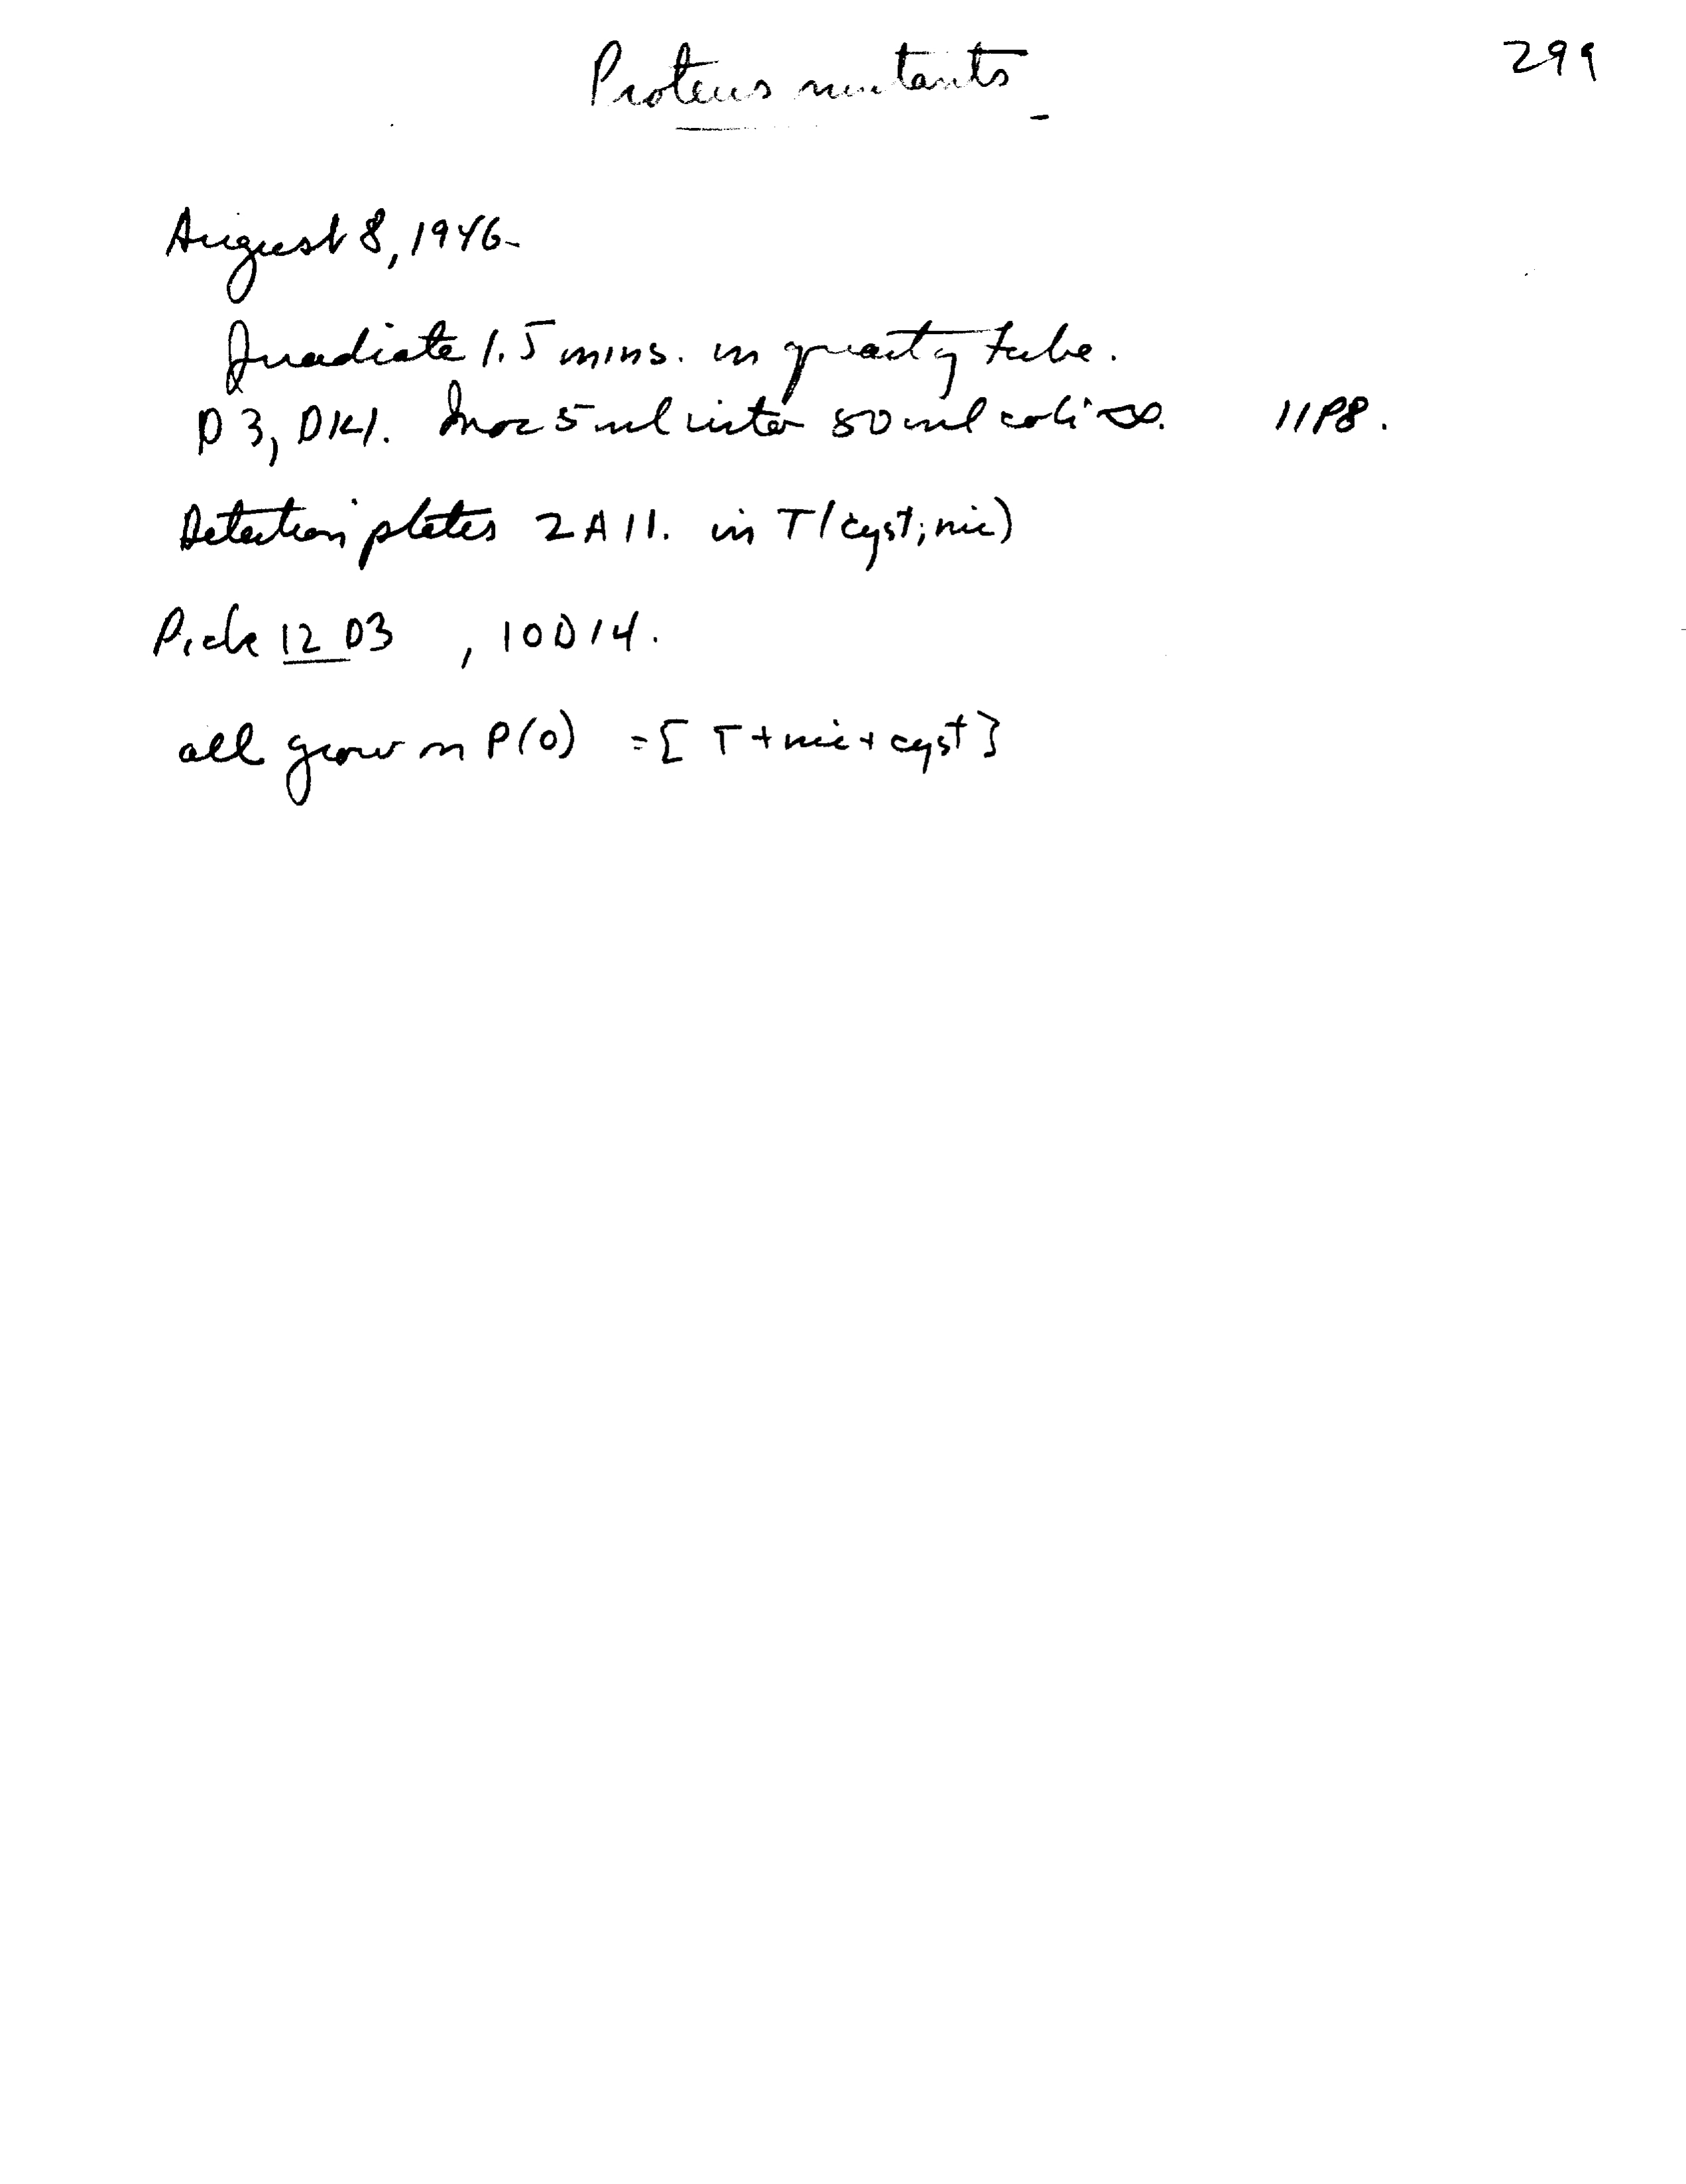 Proteus mutants 299
August 8, 1946-
Irradiate 1.5 mins. in quartz tube.
D3, D14. Inoc 5 ml into 50 ml coli 11P8.
Detection plates 2A11. in T(cyst; nic)
Pick 12 D3 , 10 D14.
all grow on P(0) = [T+nic+cyst]